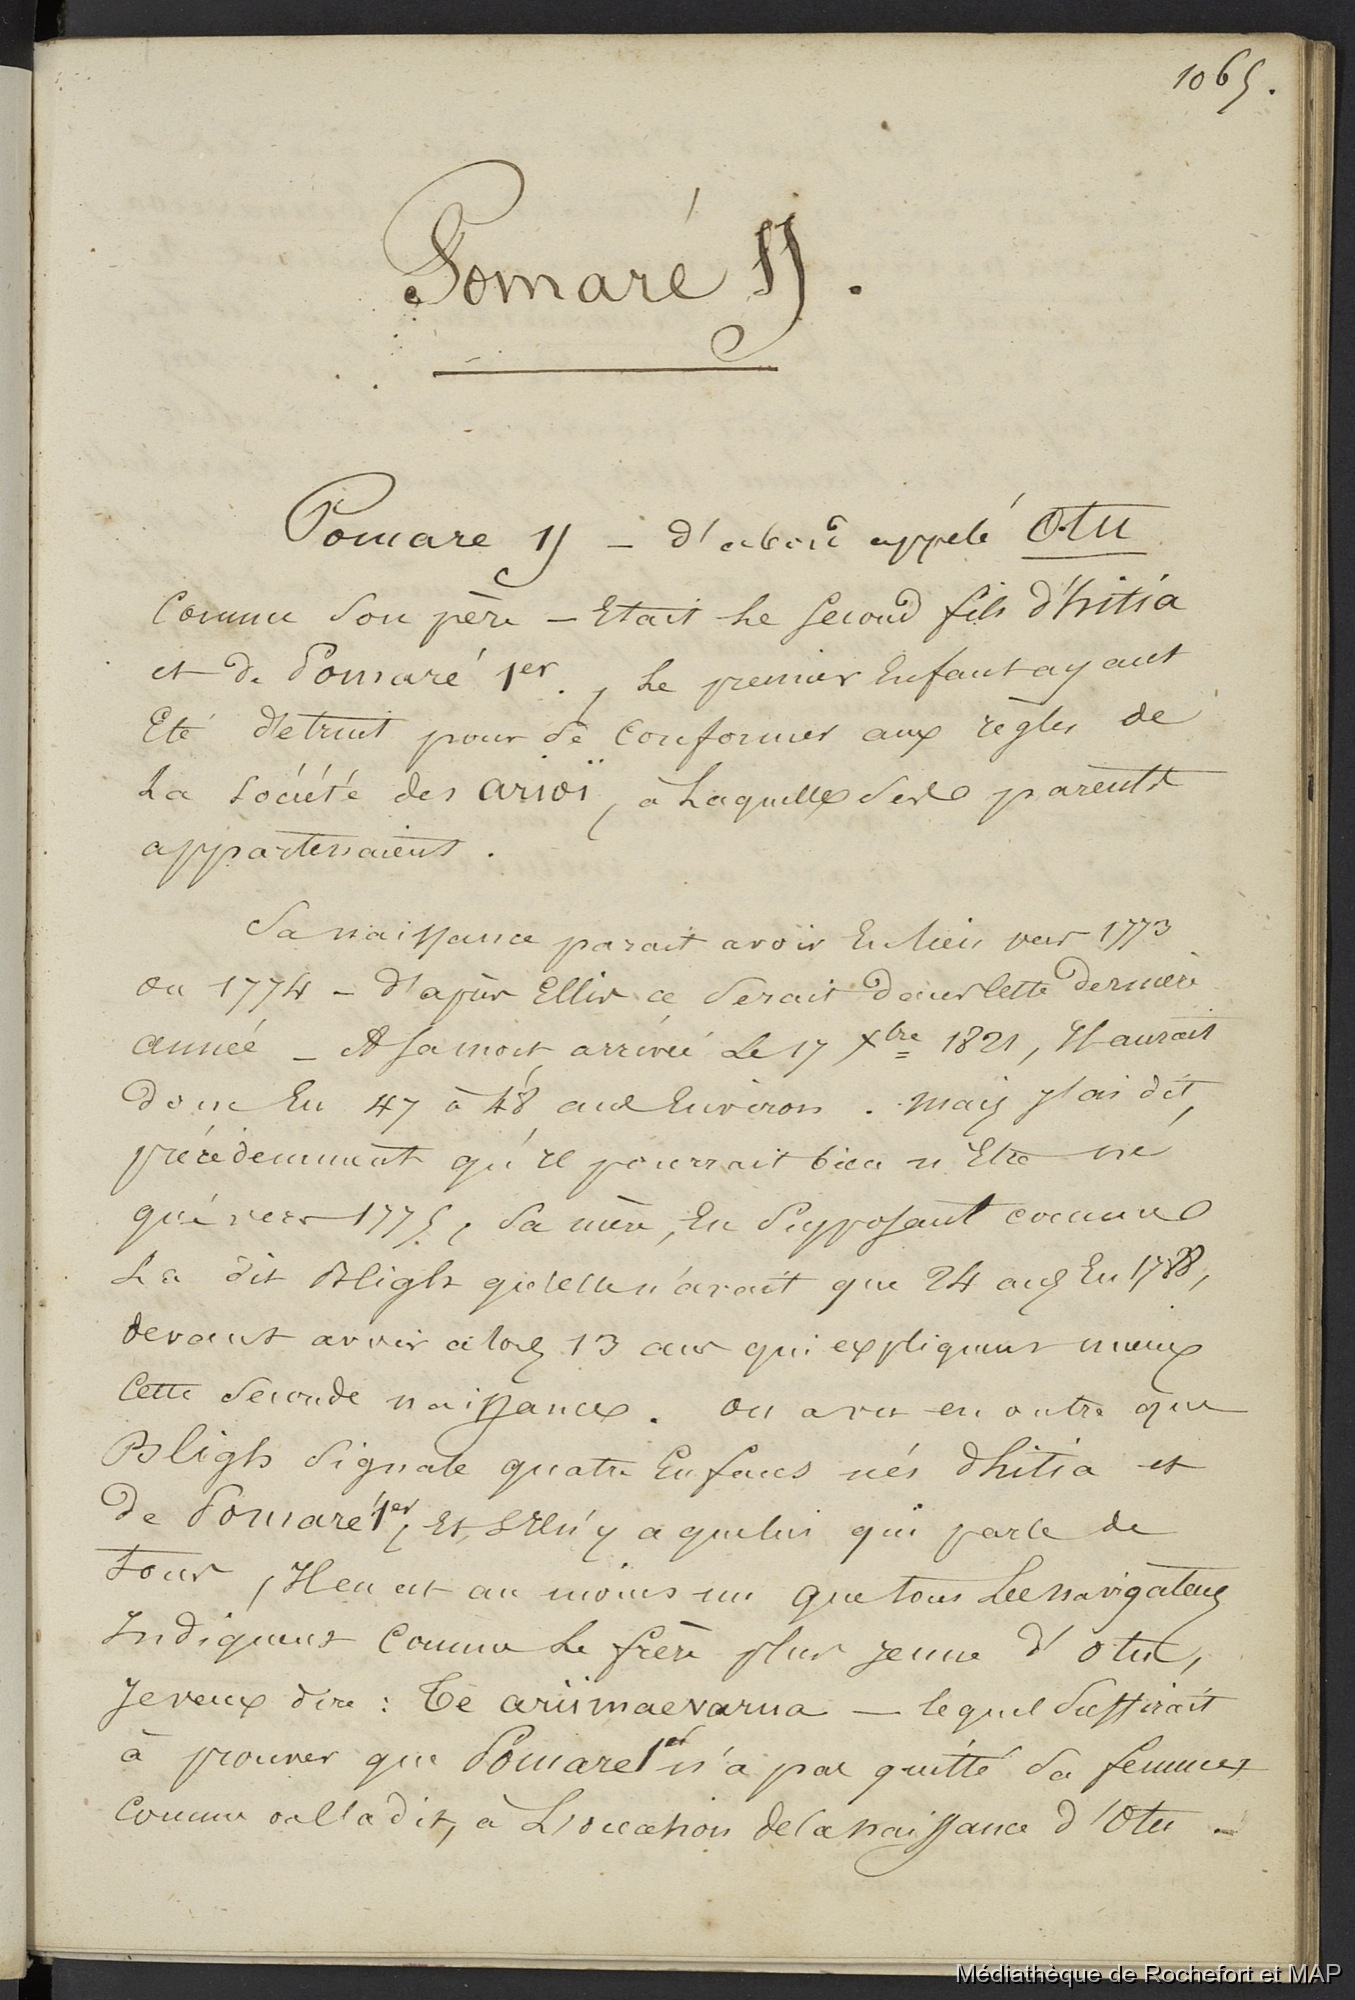 1065.
Pomaré II.
Pomare II – d'abord appelé Otu
comme son père – Etait le second fils d'hitia
et de Pomaré 1er., le premier Enfant ayant
Eté détruit pour se conformer aux règles de
La société des arioï, à Laquelle ses parents
appartenaient.
Sa naissance parait avoir Eu lieu vers 1773
ou 1774 – d'après Ellis ce serait dans cette dernière
année – A sa mort, arrivée Le 17 xbre 1821, Il aurait
donc Eu 47 à 48 ans Environ. Mais j'ai dit,
précédemment qu'il pourrait bien n'Etre né
que vers 1775, sa mère, En supposant comme
La dit Bligh qu'elle n'avait que 24 ans En 1788,
devant avoir alors 13 ans qui expliquent mieux
cette seconde naissance. on a vu en outre que
Bligh signale quatre Enfans nés d'hitia et
de Pomaré 1er, Et, s'Il n'y a que lui qui parle de
tous, Il en est au moins un que tous Les navigateurs
Indiquent comme le frère plus jeune d'otu,
Je veux dire : Te ariimaevarua – lequel suffirait
à prouver que Pomare 1er n'a pas quitté sa femme
comme on l'a dit, à L'occasion de la naissance d'Otu –
Médiathèque de Rochefort et MAP